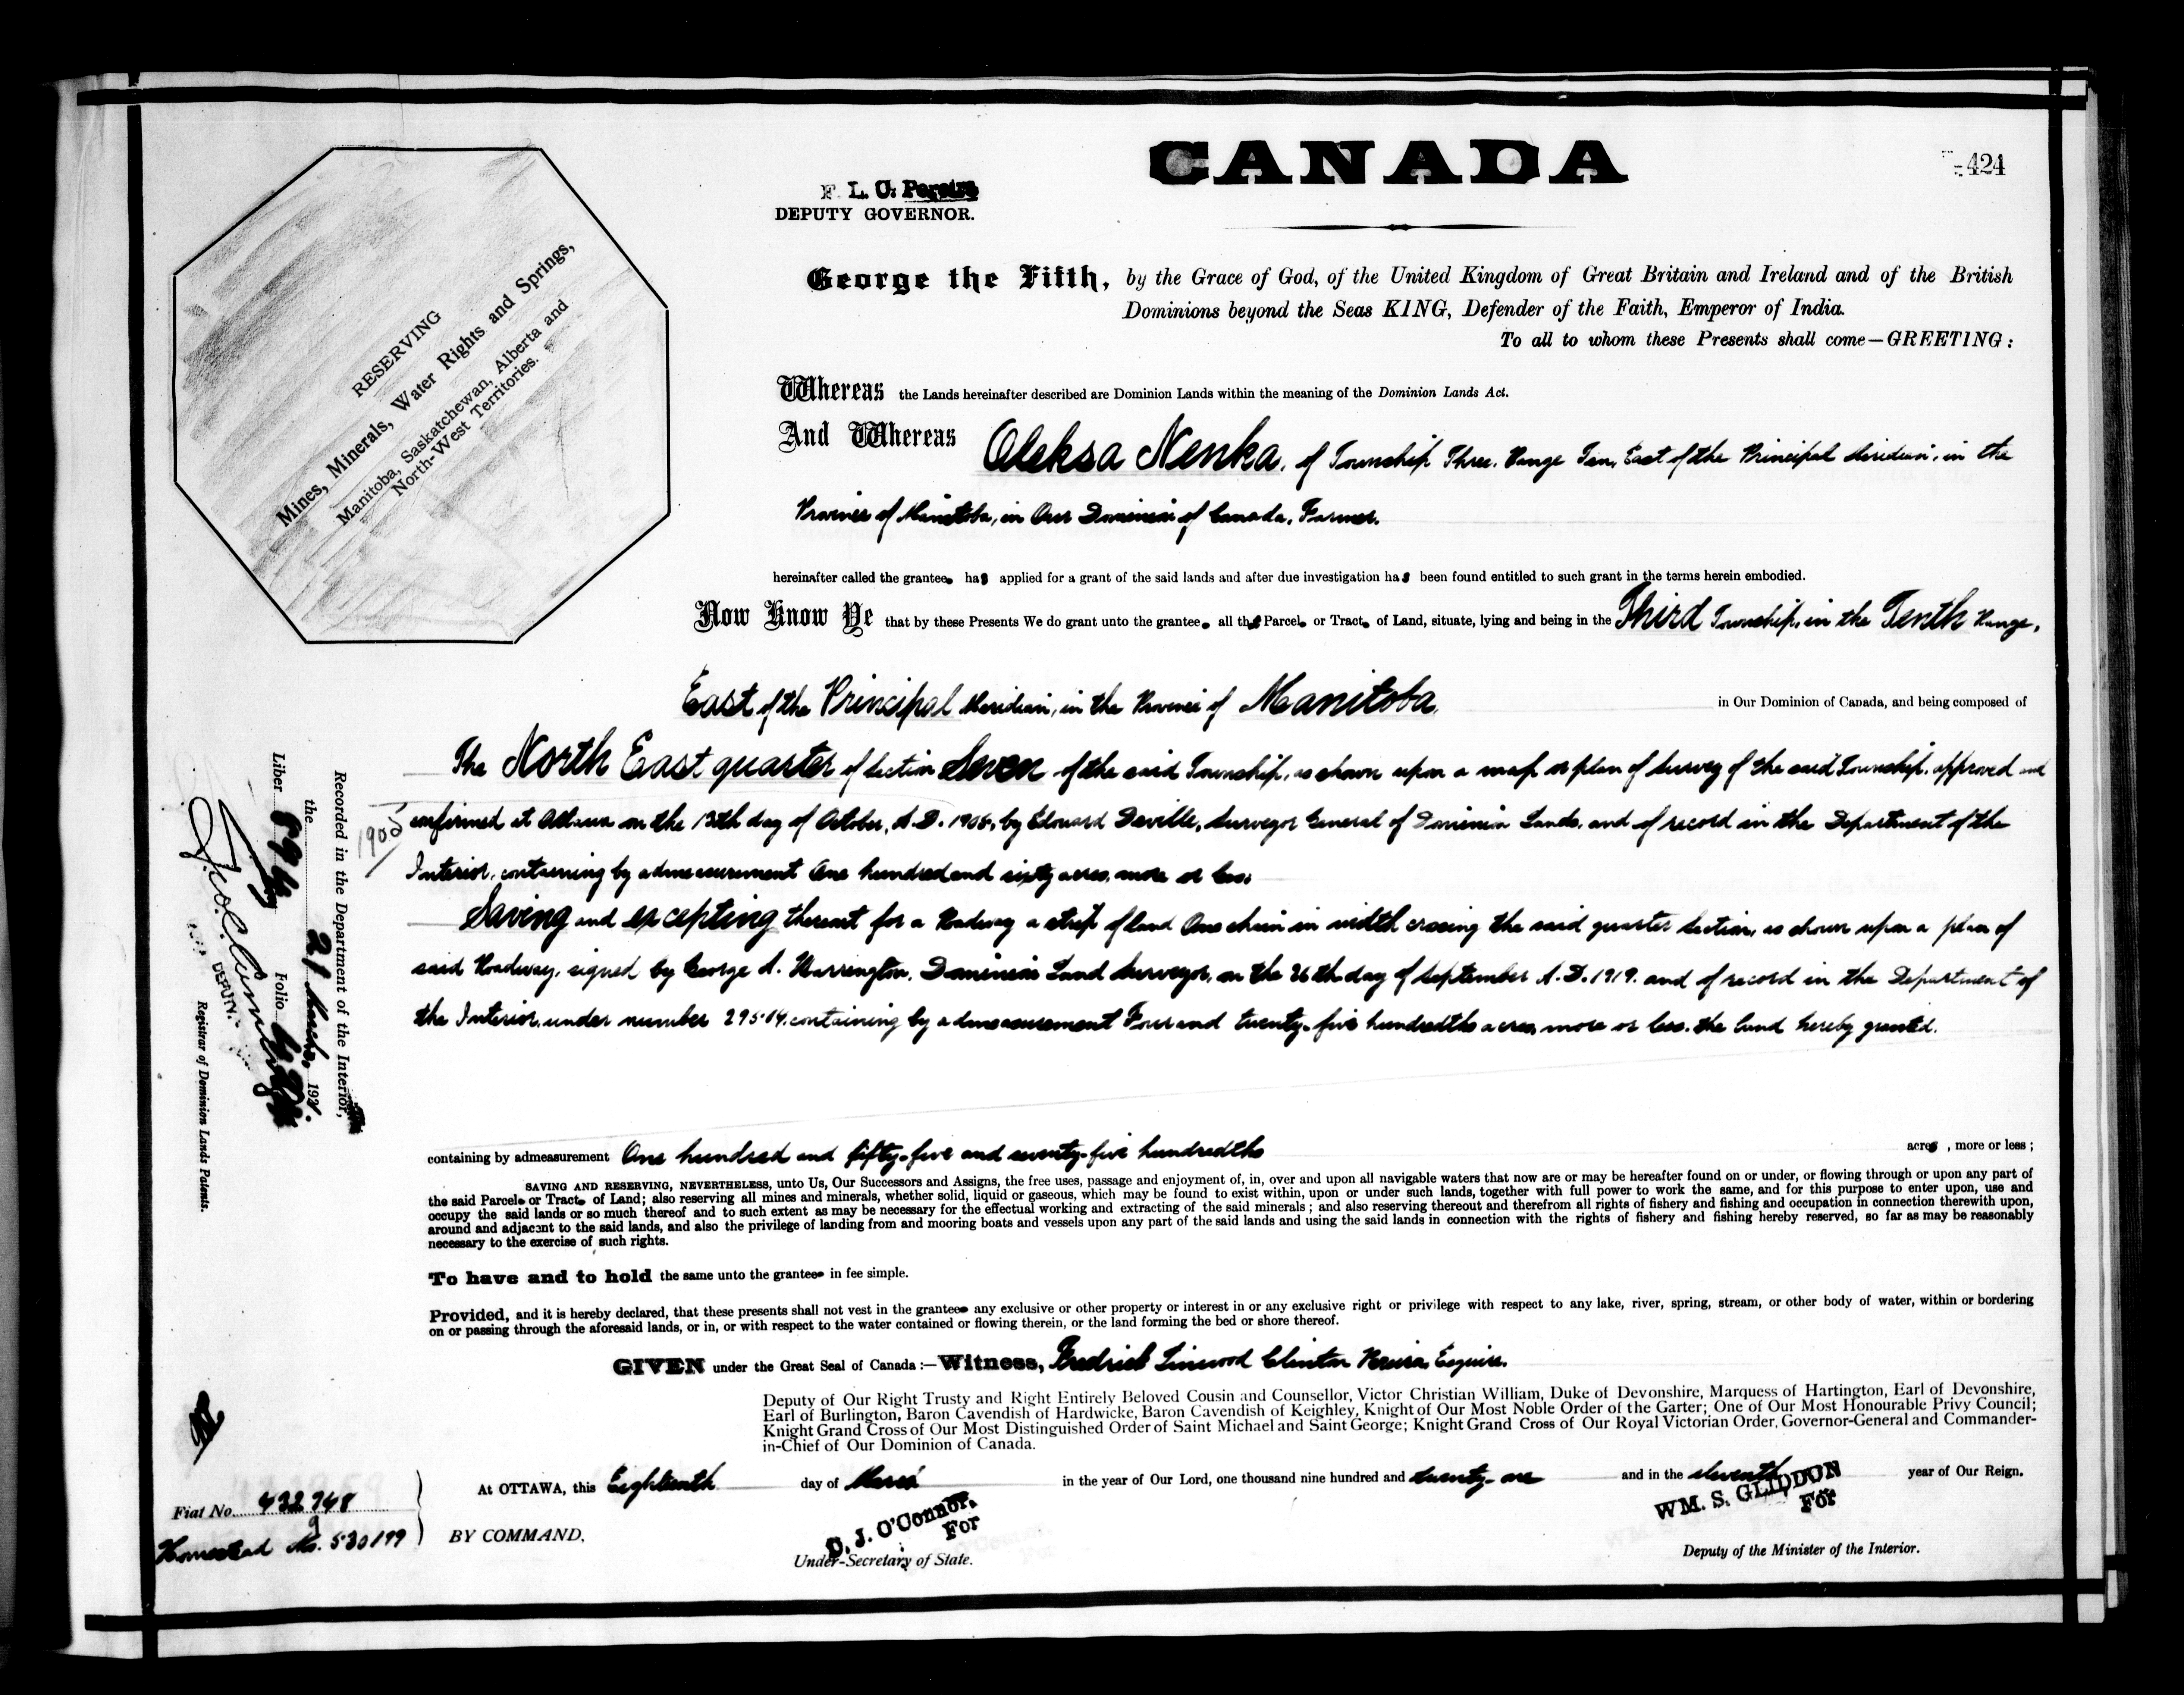 CANADA
424
F. L. C. Pereira
DEPUTY GOVERNOR.
RESERVING
Mines, Minerals, Water Rights and Springs,
Manitoba, Saskatchewan, Alberta and
North-West Territories.
George the Fifth, by the Grace of God, of the United Kingdom of Great Britain and Ireland and of the British
Dominions beyond the Seas KING, Defender of the Faith, Emperor of India.
To all to whom these Presents shall come—GREETING:
Whereas the Lands hereinafter described are Dominion Lands within the meaning of the Dominion Lands Act.
And Whereas Oleksa Nenka, of Township Three, Range Ten, East of the Principal Meridian, in the
Province of Manitoba, in Our Dominion of Canada, Farmer.
hereinafter called the grantee has applied for a grant of the said lands and after due investigation has been found entitled to such grant in the terms herein embodied.
Now Know Ye that by these Presents We do grant unto the grantee all that Parcel or Tract of Land, situate, lying and being in the Third Township, in the Tenth Range,
East of the Principal Meridian, in the Province of Manitoba, in Our Dominion of Canada, and being composed of
The North East quarter of Section Seven of the said Township, as shown upon a map or plan of Survey of the said Township, approved and
confirmed at Ottawa on the 13th day of October, A.D. 1905, by Edouard Deville, Surveyor General of Dominion Lands, and of record in the Department of the
1905
Interior, containing by admeasurement One hundred and sixty acres, more or less:
Saving and excepting thereout for a Roadway a strip of land One chain in width crossing the said quarter Section, as shown upon a plan of
said Roadway, signed by George A. Warrington, Dominion Land Surveyor, on the 26th day of September A.D. 1919, and of record in the Department of
the Interior, under number 29504, containing by admeasurement Four and twenty-five hundredths acres, more or less. the land hereby granted.
containing by admeasurement One hundred and fifty-five and seventy-five hundredths acres, more or less;
SAVING AND RESERVING, NEVERTHELESS, unto Us, Our Successors and Assigns, the free uses, passage and enjoyment of, in, over and upon all navigable waters that now are or may be hereafter found on or under, or flowing through or upon any part of
the said Parcel or Tract of Land; also reserving all mines and minerals, whether solid, liquid or gaseous, which may be found to exist within, upon or under such lands, together with full power to work the same, and for this purpose to enter upon, use and
occupy the said lands or so much thereof and to such extent as may be necessary for the effectual working and extracting of the said minerals; and also reserving thereout and therefrom all rights of fishery and fishing and occupation in connection therewith upon,
around and adjacent to the said lands, and also the privilege of landing from and mooring boats and vessels upon any part of the said lands and using the said lands in connection with the rights of fishery and fishing hereby reserved, so far as may be reasonably
necessary to the exercise of such rights.
To have and to hold the same unto the grantee in fee simple.
Provided, and it is hereby declared, that these presents shall not vest in the grantee any exclusive or other property or interest in or any exclusive right or privilege with respect to any lake, river, spring, stream, or other body of water, within or bordering
on or passing through the aforesaid lands, or in, or with respect to the water contained or flowing therein, or the land forming the bed or shore thereof.
GIVEN under the Great Seal of Canada:—Witness, Fredrick Linwood Clinton Pereira, Esquire.
Deputy of Our Right Trusty and Right Entirely Beloved Cousin and Counsellor, Victor Christian William, Duke of Devonshire, Marquess of Hartington, Earl of Devonshire,
Earl of Burlington, Baron Cavendish of Hardwicke, Baron Cavendish of Keighley, Knight of Our Most Noble Order of the Garter; One of Our Most Honourable Privy Council;
Knight Grand Cross of Our Most Distinguished Order of Saint Michael and Saint George; Knight Grand Cross of Our Royal Victorian Order, Governor-General and Commander-
in-Chief of Our Dominion of Canada.
At OTTAWA, this Eighteenth day of March in the year of Our Lord, one thousand nine hundred and twenty-one and in the eleventh year of Our Reign.
D. J. O'Connor,
For
WM. S. GLIDDON
For
BY COMMAND,
Under-Secretary of State.
Deputy of the Minister of the Interior.
Recorded in the Department of the Interior,
the 21 March, 1921.
Liber 896 Folio
DEPUTY
Registrar of Dominion Lands Patents.
Fiat No. 432948
Homestead No. 530199